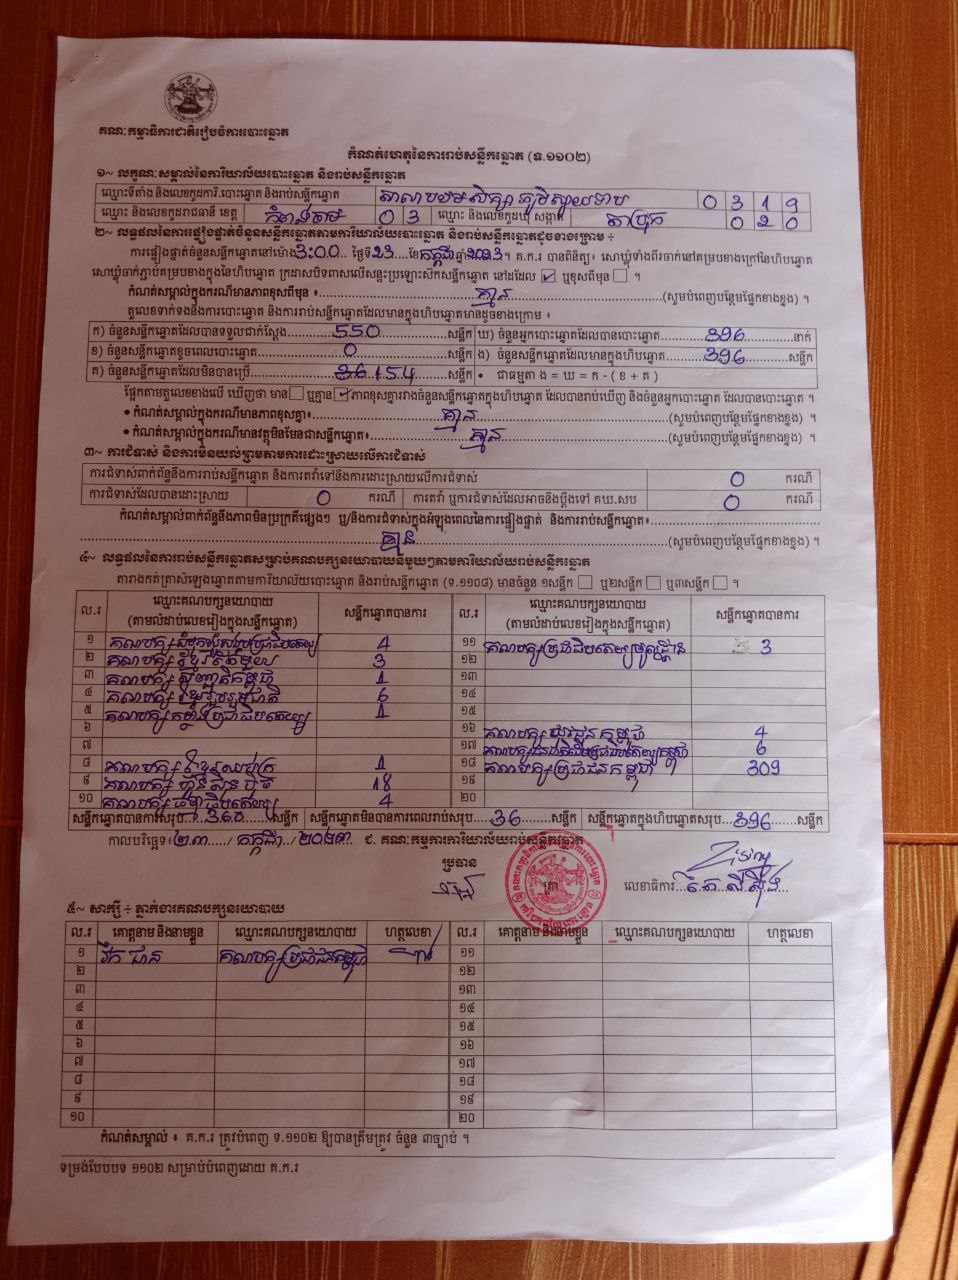 គណៈកម្មាធិការជាតិរៀបចំការបោះឆ្នោត
កំណត់ហេតុនៃការរាប់សន្លឹកឆ្នោត (ទ.១១០២)
១~ លក្ខណៈសម្គាល់នៃការិយាល័យបោះឆ្នោត និងរាប់សន្លឹកឆ្នោត
ឈ្មោះទីតាំង និងលេខកូដការិ.បោះឆ្នោត និងរាប់សន្លឹកឆ្នោត សាលាបឋមសិក្សា 0 3 1 9
ឈ្មោះ និងលេខកូដរាជធានី ខេត្ត កំពង់ចាម 0 3 ឈ្មោះ និងលេខកូដឃុំ សង្កាត់ 0 2 0
២~ លទ្ធផលនៃការផ្ទៀងផ្ទាត់ចំនួនសន្លឹកឆ្នោតតាមការិយាល័យបោះឆ្នោត និងរាប់សន្លឹកឆ្នោតដូចខាងក្រោម ÷
ការផ្ទៀងផ្ទាត់ចំនួនសន្លឹកឆ្នោតនៅម៉ោង 3:00 ថ្ងៃទី 23 ខែ កក្កដា ឆ្នាំ 2023 ។ គ.ក.រ បានពិនិត្យ៖ សោឃ្លុំទាំងពីរចាក់នៅគម្របខាងក្រៅនៃហិបឆ្នោត
សោឃ្លុំចាក់ភ្ជាប់គម្របខាងក្នុងនៃហិបឆ្នោត ក្រដាសបិទពាសលើសន្ទះប្រឡោះសិកសន្លឹកឆ្នោត នៅដដែល ✓ ឬខុសពីមុន ។
កំណត់សម្គាល់ក្នុងករណីមានភាពខុសពីមុន ៖ គ្មាន (សូមបំពេញបន្ថែមផ្នែកខាងខ្នង) ។
តួលេខទាក់ទងនឹងការបោះឆ្នោត និងការរាប់សន្លឹកឆ្នោតដែលមានក្នុងហិបឆ្នោតមានដូចខាងក្រោម ៖
ក) ចំនួនសន្លឹកឆ្នោតដែលបានទទួលជាក់ស្តែង 550 សន្លឹក ឃ) ចំនួនអ្នកបោះឆ្នោតដែលបានបោះឆ្នោត 396 នាក់
ខ) ចំនួនសន្លឹកឆ្នោតខូចពេលបោះឆ្នោត 0 សន្លឹក ង) ចំនួនសន្លឹកឆ្នោតដែលមានក្នុងហិបឆ្នោត 396 សន្លឹក
គ) ចំនួនសន្លឹកឆ្នោតដែលមិនបានប្រើ 154 សន្លឹក • ជាធម្មតា ង = ឃ = ក - ( ខ + គ )
ផ្អែកតាមតួលេខខាងលើ ឃើញថា មាន ឬគ្មាន ✓ ភាពខុសគ្នារវាងចំនួនសន្លឹកឆ្នោតក្នុងហិបឆ្នោត ដែលបានរាប់ឃើញ និងចំនួនអ្នកបោះឆ្នោត ដែលបានបោះឆ្នោត ។
• កំណត់សម្គាល់ក្នុងករណីមានភាពខុសគ្នា៖ គ្មាន (សូមបំពេញបន្ថែមផ្នែកខាងខ្នង) ។
• កំណត់សម្គាល់ក្នុងករណីមានវត្ថុមិនមែនជាសន្លឹកឆ្នោត៖ គ្មាន (សូមបំពេញបន្ថែមផ្នែកខាងខ្នង) ។
៣~ ការជំទាស់ និងការមិនយល់ព្រមតាមការដោះស្រាយលើការជំទាស់
ការជំទាស់ពាក់ព័ន្ធនឹងការរាប់សន្លឹកឆ្នោត និងការតវ៉ាទៅនឹងការដោះស្រាយលើការជំទាស់ 0 ករណី
ការជំទាស់ដែលបានដោះស្រាយ 0 ករណី ការតវ៉ា ឬការជំទាស់ដែលអាចនឹងប្តឹងទៅ គឃ.សប 0 ករណី
កំណត់សម្គាល់ពាក់ព័ន្ធនឹងភាពមិនប្រក្រតីផ្សេងៗ ឬ/និងការជំទាស់ក្នុងអំឡុងពេលនៃការផ្ទៀងផ្ទាត់ និងការរាប់សន្លឹកឆ្នោត៖
គ្មាន (សូមបំពេញបន្ថែមផ្នែកខាងខ្នង) ។
៤~ លទ្ធផលនៃការរាប់សន្លឹកឆ្នោតសម្រាប់គណបក្សនយោបាយនីមួយៗតាមការិយាល័យរាប់សន្លឹកឆ្នោត
តារាងកត់ត្រាសំឡេងឆ្នោតតាមការិយាល័យបោះឆ្នោត និងរាប់សន្លឹកឆ្នោត (ទ.១១០៨) មានចំនួន ១សន្លឹក ឬ២សន្លឹក ឬ៣សន្លឹក ។
ល.រ ឈ្មោះគណបក្សនយោបាយ (តាមលំដាប់លេខរៀងក្នុងសន្លឹកឆ្នោត) សន្លឹកឆ្នោតបានការ ល.រ ឈ្មោះគណបក្សនយោបាយ (តាមលំដាប់លេខរៀងក្នុងសន្លឹកឆ្នោត) សន្លឹកឆ្នោតបានការ
១ គណបក្ស 4 ១១ គណបក្សប្រជាធិបតេយ្យមូលដ្ឋាន 3
២ គណបក្ស ខ្មែរតែមួយ 3 ១២
៣ គណបក្ស 1 ១៣
៤ គណបក្ស ខ្មែររួបរួមជាតិ 6 ១៤
៥ គណបក្ស កម្លាំងប្រជាធិបតេយ្យ 1 ១៥
៦ ១៦ គណបក្ស យុវជនកម្ពុជា 4
៧ ១៧ គណបក្ស 6
៨ គណបក្ស ខ្មែរឈប់ក្រ 1 ១៨ គណបក្សប្រជាជនកម្ពុជា 309
៩ គណបក្ស ហ៊្វុនស៊ិនប៉ិច 18 ១៩
១០ គណបក្ស ធម្មាធិបតេយ្យ 4 ២០
សន្លឹកឆ្នោតបានការសរុប 360 សន្លឹក សន្លឹកឆ្នោតមិនបានការពេលរាប់សរុប 36 សន្លឹក សន្លឹកឆ្នោតក្នុងហិបឆ្នោតសរុប 396 សន្លឹក
កាលបរិច្ឆេទ៖ ២៣ / កក្កដា / ២០២៣ ជ. គណៈកម្មការការិយាល័យរាប់សន្លឹកឆ្នោត
ប្រធាន ត្រា លេខាធិការ
៥~ សាក្សី ÷ ភ្នាក់ងារគណបក្សនយោបាយ
ល.រ គោត្តនាម និងនាមខ្លួន ឈ្មោះគណបក្សនយោបាយ ហត្ថលេខា ល.រ គោត្តនាម និងនាមខ្លួន ឈ្មោះគណបក្សនយោបាយ ហត្ថលេខា
១ គណបក្សប្រជាជនកម្ពុជា ១១
២ ១២
៣ ១៣
៤ ១៤
៥ ១៥
៦ ១៦
៧ ១៧
៨ ១៨
៩ ១៩
១០ ២០
កំណត់សម្គាល់ ៖ គ.ក.រ ត្រូវបំពេញ ទ.១១០២ ឱ្យបានត្រឹមត្រូវ ចំនួន ៣ច្បាប់ ។
ទម្រង់បែបបទ ១១០២ សម្រាប់បំពេញដោយ គ.ក.រ